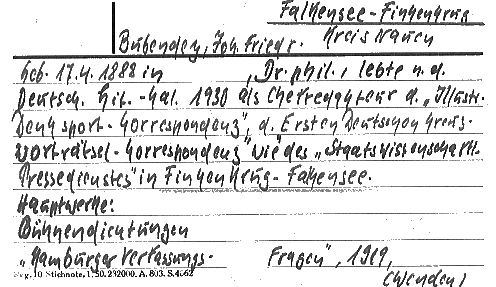 Falkensee-Finkenkrug
Kreis Nauen
Bubendey, Joh. Friedr.
Geb. 17.4.1888 in , Dr. phil., lebte n. d.
Deutsch. Lit.-Kal. 1930 als Chefredakteur d. „Illustr.
Denksport-Korrespondenz", d. Ersten Deutschen Kreuz-
worträtsel-Korrespondenz" wie des „Staatswissenschaftl.
Pressedienstes" in Finkenkrug-Falkensee.
Hauptwerke:
Bühnendichtungen
„Hamburger Verfassungs- Fragen", 1919,
(wenden)
Erg. 10 Stichnote, 1. 50. 232000. A. 803. S. 4562